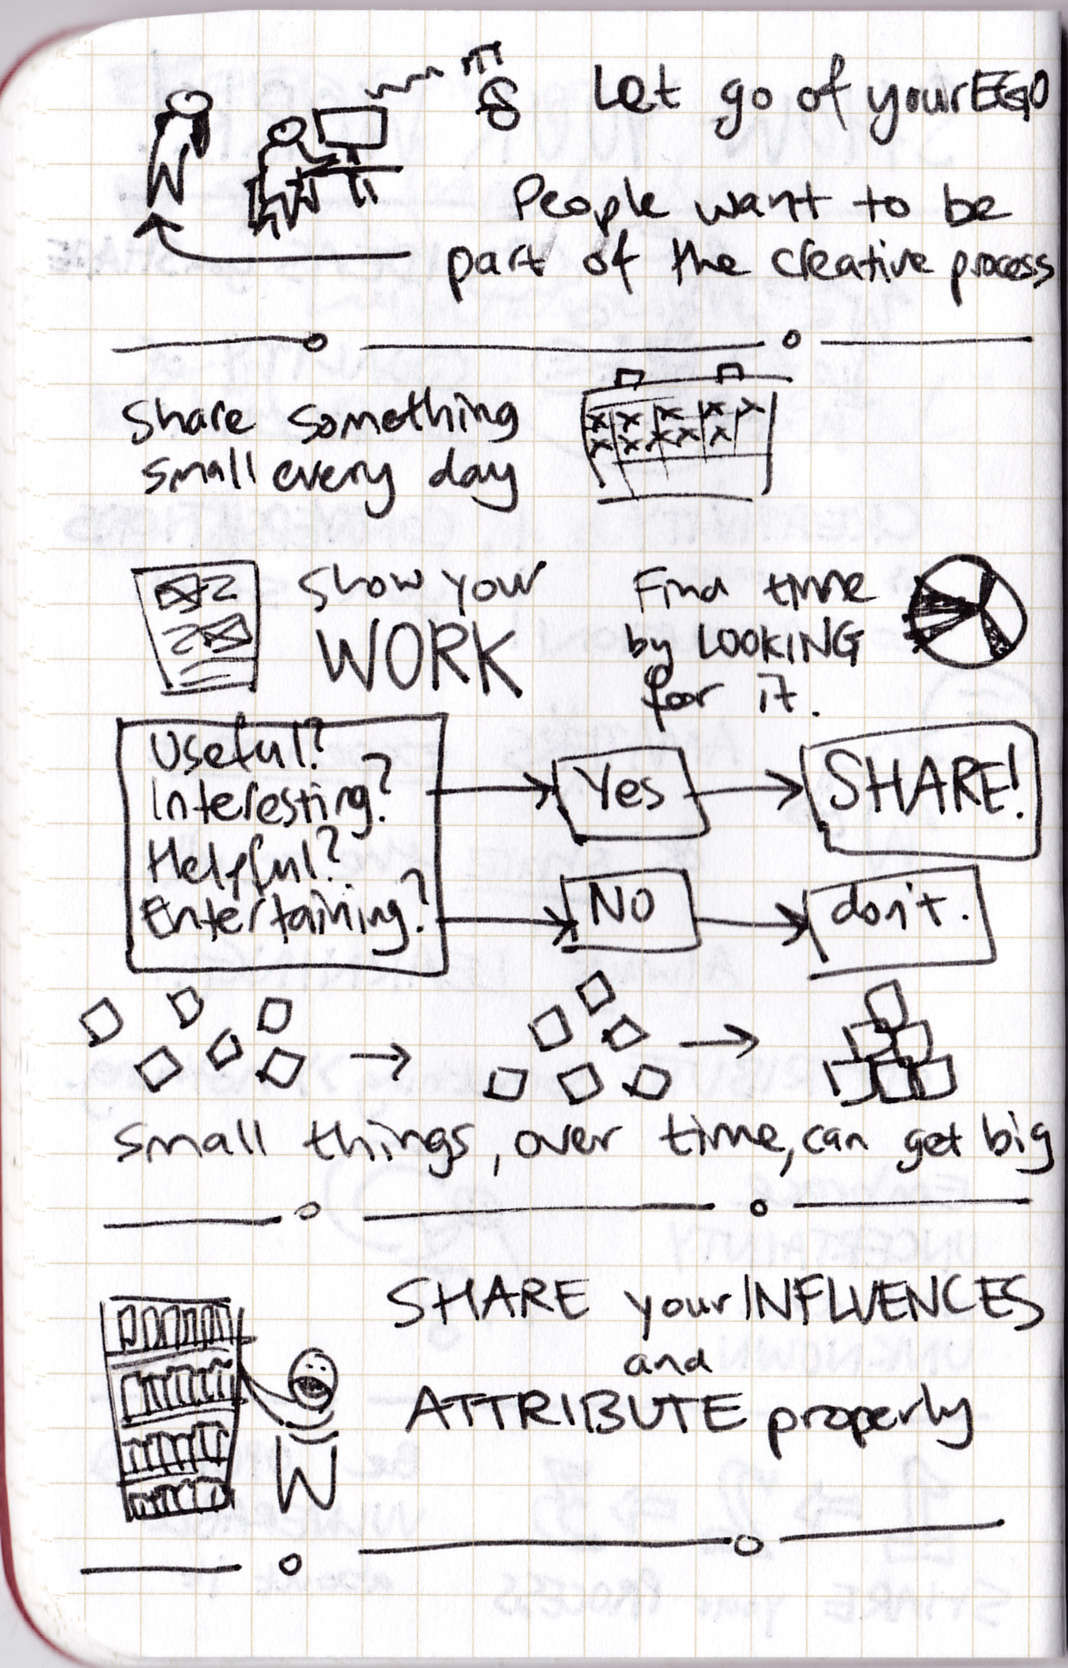 Let go of your EGO
People want to be
part of the creative process
Share something
small every day
Show your
WORK
Find time
by LOOKING
for it.
Useful?
Interesting?
Helpful?
Entertaining?
Yes
SHARE!
NO
don't.
Small things, over time, can get big
SHARE your INFLUENCES
and
ATTRIBUTE properly